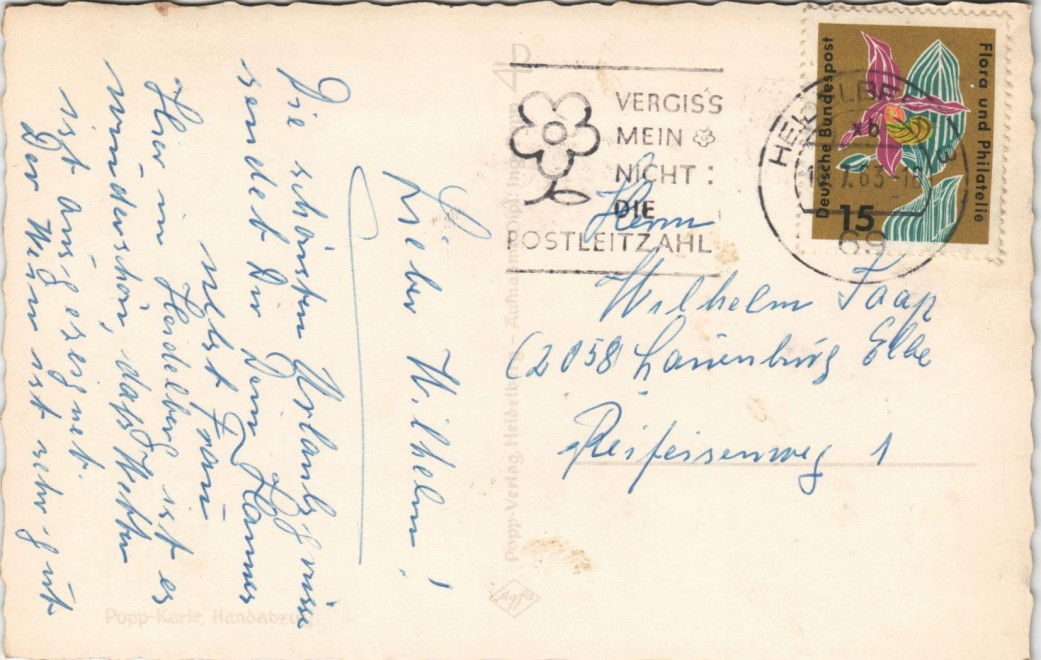 Lieber Wilhelm!
Die schönsten Urlaubsgrüsse
sendet Dir Dein Hannes
nebst Frau
Hier in Heidelberg ist es
wunderschön, das Wetter
ist ausgezeignet.
Der Wein ist sehr gut
Popp-Karte, Handabzug
Popp-Verlag, Heidelberg – Aufnahme
Agfa
VERGISS
MEIN
NICHT :
DIE
POSTLEITZAHL
HEIDELBERG
xb
63-18
69
Deutsche Bundespost
Flora und Philatelie
15
Herrn
Wilhelm Taap
(2058 Lauenburg Elbe
Reifeisenweg 1